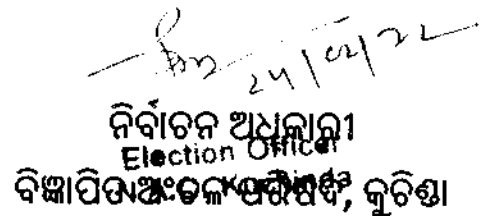 24/02/22
ନିର୍ବାଚନ ଅଧିକାରୀ
Election Officer
ବିଜ୍ଞାପିତ ଅଞ୍ଚଳ ପରିଷଦ, କୁଚିଣ୍ଡା